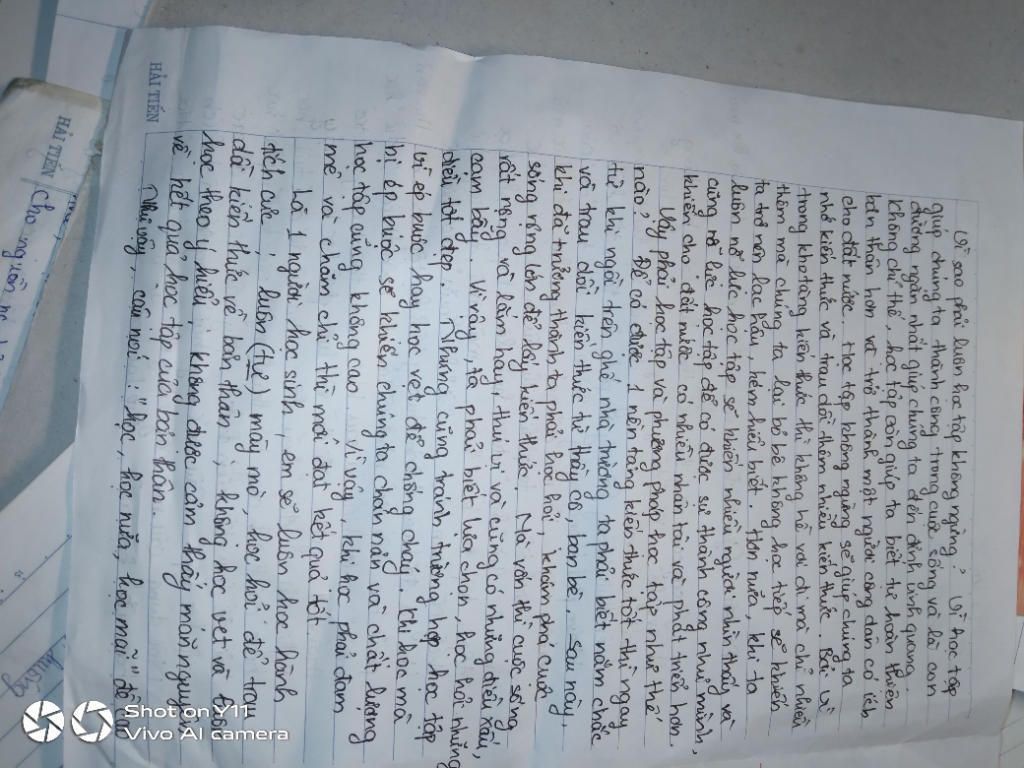 Vì sao phải luôn học tập không ngừng? Vì học tập
giúp chúng ta thành công trong cuộc sống và là con
đường ngắn nhất giúp chúng ta đến đỉnh vinh quang.
Không chỉ thế, học tập còn giúp ta biết tự hoàn thiện
bản thân hơn và trở thành một người công dân có ích
cho đất nước. Học tập không ngừng sẽ giúp chúng ta
nhớ kiến thức và trau dồi thêm nhiều kiến thức. Bởi vì
trong kho tàng kiến thức thì không hề vơi đi mà chỉ nhiều
thêm mà chúng ta lại bỏ bê không học tiếp sẽ khiến
ta trở nên lạc hậu, kém hiểu biết. Hơn nữa, khi ta
luôn nỗ lực học tập sẽ khiến nhiều người nhìn thấy và
cũng nỗ lực học tập để có được sự thành công như mình,
khiến cho đất nước có nhiều nhân tài và phát triển hơn.
Vậy phải học tập và phương pháp học tập như thế
nào? Để có được 1 nền tảng kiến thức tốt thì ngay
từ khi ngồi trên ghế nhà trường ta phải biết nắm chắc
và trau dồi kiến thức từ thầy cô, bạn bè. Sau này,
khi đã trưởng thành ta phải học hỏi, khám phá cuộc
sống rộng lớn để lấy kiến thức. Mà vốn thì cuộc sống
rất rộng và lắm hay, thú vị và cũng có những điều xấu,
cạm bẫy. Vì vậy, ta phải biết lựa chọn, học hỏi những
điều tốt đẹp. Nhưng cũng tránh trường hợp học tập
vì ép buộc hay học vẹt để chống cháy. Khi học mà
bị ép buộc sẽ khiến chúng ta chán nản và chất lượng
học tập cũng không cao. Vì vậy, khi học phải đam
mê và chăm chỉ thì mới đạt kết quả tốt.
Là 1 người học sinh, em sẽ luôn học hành
tích cực, luôn (tự) mày mò, học hỏi để trau
dồi kiến thức về bản thân, không học vẹt và
học theo ý hiểu, không được cảm thấy mãn nguyện
về kết quả học tập của bản thân.
Như vậy, câu nói: "học, học nữa, học mãi" đã có
HẢI TIẾN
HẢI TIẾN